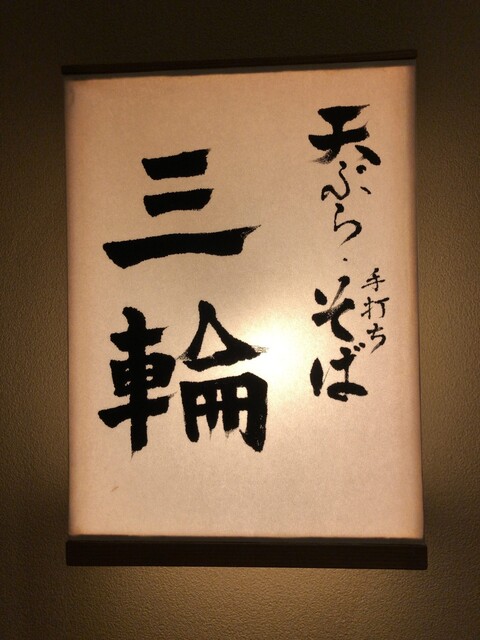 天ぷら・そば
手打ち
三輪